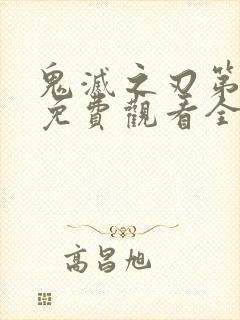 鬼滅之刃第
免費觀看全
高昌旭